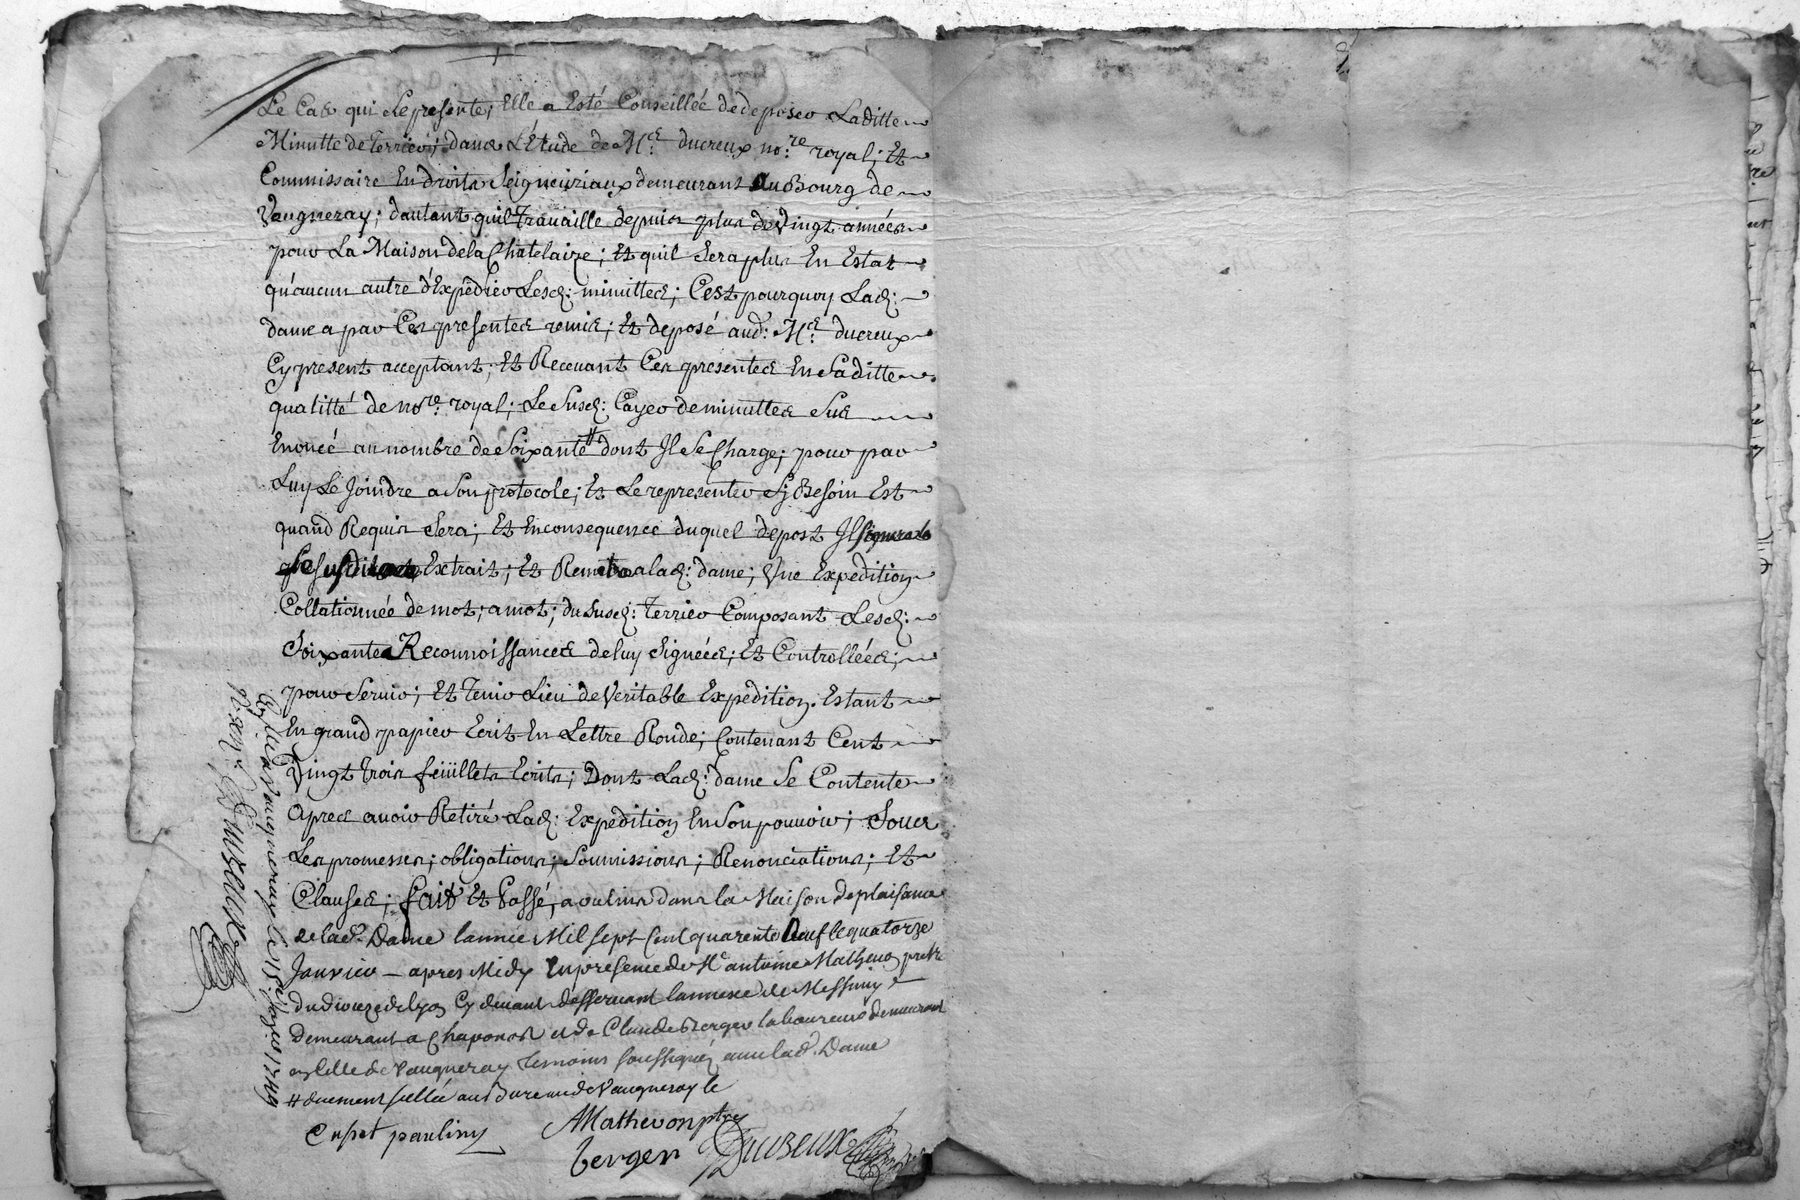 Le Cas qui Se presente, Elle a Esté Conseillée de deposer Laditte
Minutte de Terrier; dans L'Etude de Me. ducreux no.re royal; Et
Commissaire En droits Seigneuriaux demeurant Au Bourg de
Vaugneray; dautant quil Travaille depuis plus de Vingt années
pour La Maison de la Chatelaize; Et quil Sera plus En Estat
qu'aucun autre d'Expédier Lesd: minuttes; C'est pourquoy Lad:
dame a par Ces presentes remis; Et deposé aud: Me. ducreux
Cy present acceptant; Et Recevant Ces presentes En Saditte
qualitté de no.re royal; Le Susd: Cayer de minuttes Sus
Enoncé au nombre de Soixante # dont Il Se Charge; pour par
Luy Le Joindre a Son protocole; Et Le representer Sy Besoin Est
quand Requis Sera; Et En consequence duquel depost Il
Extrait; Et Remettra a lad: dame; Une Expedition
Collationnée de mot; a mot; du Susd: Terrier Composant Lesd:
Soixante Reconnoissances de luy Signées; Et Controllées;
pour Servir; Et Tenir Lieu de Veritable Expedition. Estant
En grand papier Ecrit En Lettre Ronde; Contenant Cent
Vingt Trois feüillets Ecrits; Dont Lad: dame Se Contente
Apres avoir Retiré Lad: Expedition En Son pouvoir; Sous
Les promesses; obligations; Soumissions; Renonciations; Et
Clauses; fait Et Passé, a oulins dans la Maison de plaisance
de lad: Dame lannée Mil sept Cent quarente Neuf le quatorze
Janvier – apres Midy En presence de Me antoine Mathevon pretre
du dioceze de lyon Cy devant desservant lannexe de Messimy
Demeurant a Chaponost et de Claude Berger laboureur demeurant
de Vaugneray temoins soussignés avec lad. Dame
# duement scellée au Bureau de Vaugneray le
Cuset pauliny
AMathevon ptre
berger
Ducreux
Vaugneray le 15e Janvier 1749